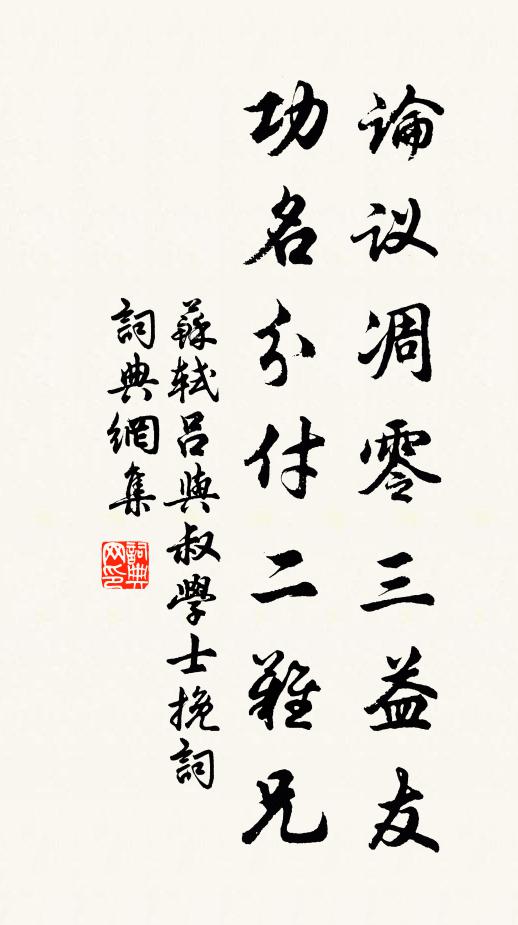 論议凋零三益友
功名分付二難兄
蘇軾吕與叔學士挽詞
詞典網集
詞典网印